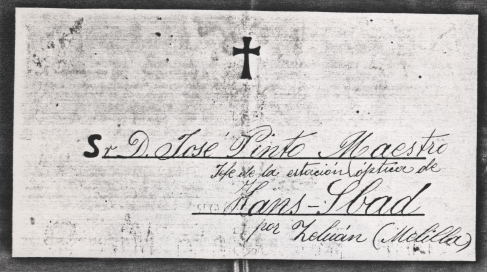 Sr D. José Pinto Maestro
Jefe de la estación óptica de
Hans-Sbad
por Zeluán (Melilla)